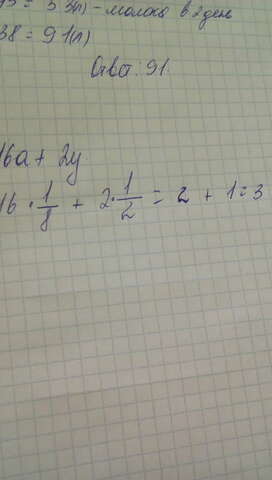 = 53(л) - молока в 2 день
38 = 91(л)
Ответ: 91.
16a + 2y
16 · 1/8 + 2 · 1/2 = 2 + 1 = 3